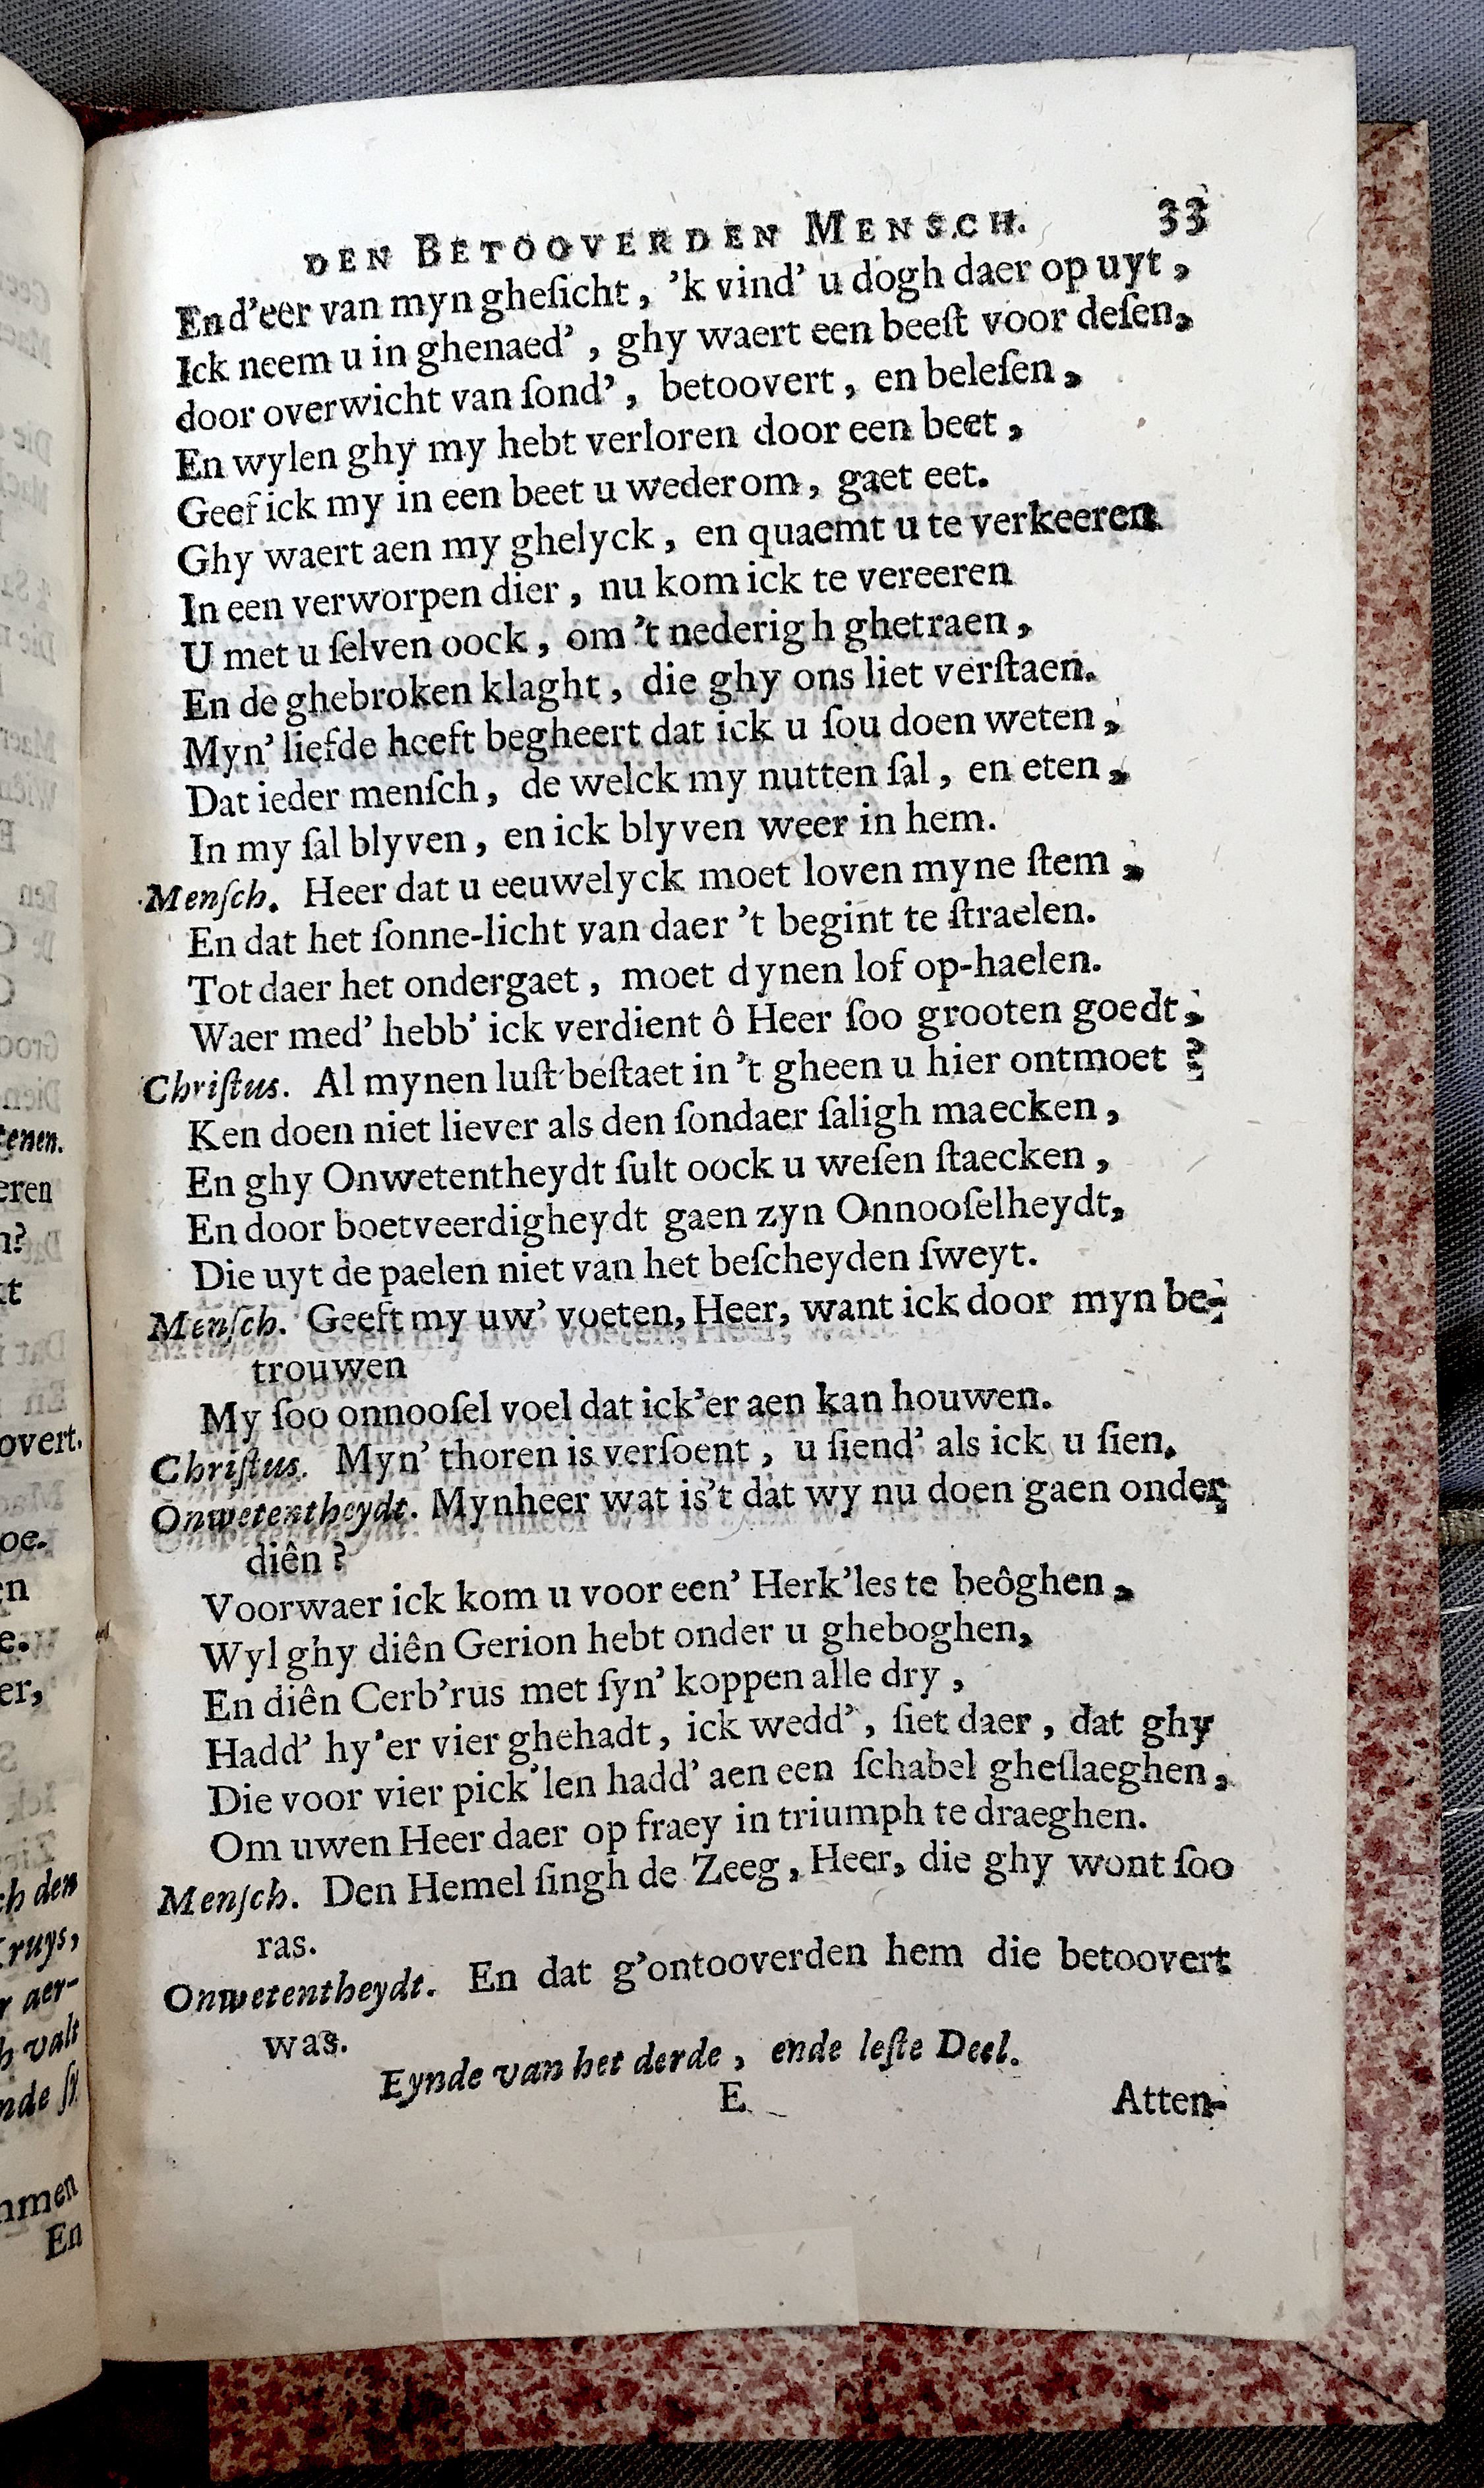 DEN BETOOVERDEN MENSCH. 33
End'eer van myn gheſicht, 'k vind' u dogh daer op uyt,
Ick neem u in ghenaed', ghy waert een beeſt voor deſen,
door overwicht van ſond', betoovert, en beleſen,
En wylen ghy my hebt verloren door een beet,
Geef ick my in een beet u wederom, gaet eet.
Ghy waert aen my ghelyck, en quaemt u te verkeeren
In een verworpen dier, nu kom ick te vereeren
U met u ſelven oock, om 't nederigh ghetraen,
En de ghebroken klaght, die ghy ons liet verſtaen.
Myn' liefde heeft begheert dat ick u ſou doen weten,
Dat ieder menſch, de welck my nutten ſal, en eten,
In my ſal blyven, en ick blyven weer in hem.
Menſch. Heer dat u eeuwelyck moet loven myne ſtem,
En dat het ſonne-licht van daer 't begint te ſtraelen.
Tot daer het ondergaet, moet dynen lof op-haelen.
Waer med' hebb' ick verdient ô Heer ſoo grooten goedt,
Chriſtus. Al mynen luſt beſtaet in 't gheen u hier ontmoet ?
Ken doen niet liever als den ſondaer ſaligh maecken,
En ghy Onwetentheydt ſult oock u weſen ſtaecken,
En door boetveerdigheydt gaen zyn Onnooſelheydt,
Die uyt de paelen niet van het beſcheyden ſweyt.
Menſch. Geeft my uw' voeten, Heer, want ick door myn be-
trouwen
My ſoo onnooſel voel dat ick'er aen kan houwen.
Chriſtus. Myn' thoren is verſoent, u ſiend' als ick u ſien.
Onwetentheydt. Mynheer wat is't dat wy nu doen gaen onder
diên ?
Voorwaer ick kom u voor een' Herk'les te beôghen,
Wyl ghy diên Gerion hebt onder u gheboghen,
En diên Cerb'rus met ſyn' koppen alle dry,
Hadd' hy'er vier ghehadt, ick wedd', ſiet daer, dat ghy
Die voor vier pick'len hadd' aen een ſchabel gheſlaeghen,
Om uwen Heer daer op fraey in triumph te draeghen.
Menſch. Den Hemel ſingh de Zeeg, Heer, die ghy wont ſoo
ras.
Onwetentheydt. En dat g'ontooverden hem die betoovert
was.
Eynde van het derde, ende leſte Deel.
E Atten-